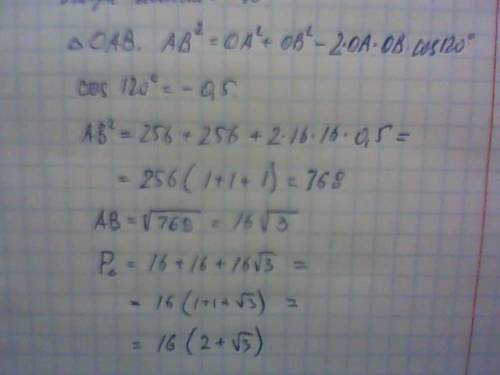 △ OAB. AB² = OA² + OB² - 2·OA·OB·cos120°
cos 120° = - 0,5
AB² = 256 + 256 + 2·16·16·0,5 =
= 256(1+1+1) = 768
AB = √768 = 16√3
P₀ = 16 + 16 + 16√3 =
= 16(1+1+√3) =
= 16(2+√3)